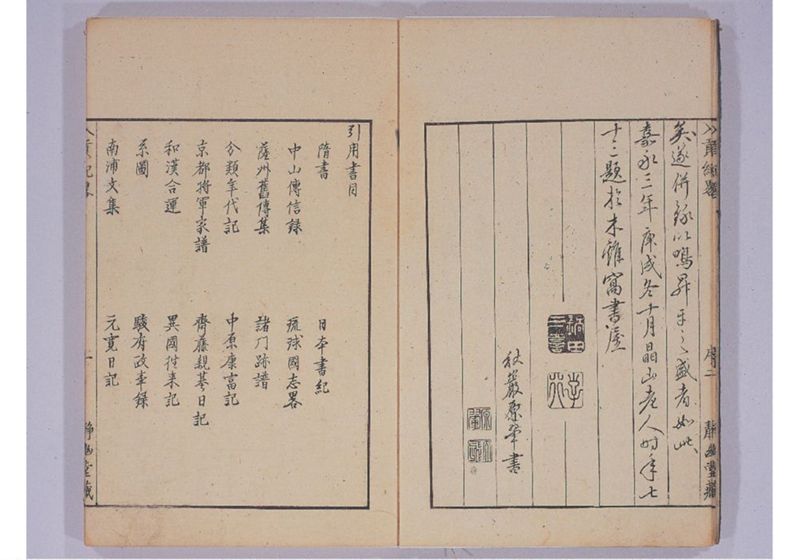 矣遂併録以鳴昇平之盛者如此
嘉永三年庚戌冬十月晶山老人時年七
十三題於木雞窩書屋
秋巖原翬書
静幽堂藏
引用書目
隋書　日本書紀
中山傳信録　琉球國志畧
薩州舊傳集　諸門跡譜
分類年代記　中原康富記
京都将軍家譜　齊藤親基日記
和漢合運　異國往来記
系圖　駿府政事録
南浦文集　元寛日記
静幽堂藏